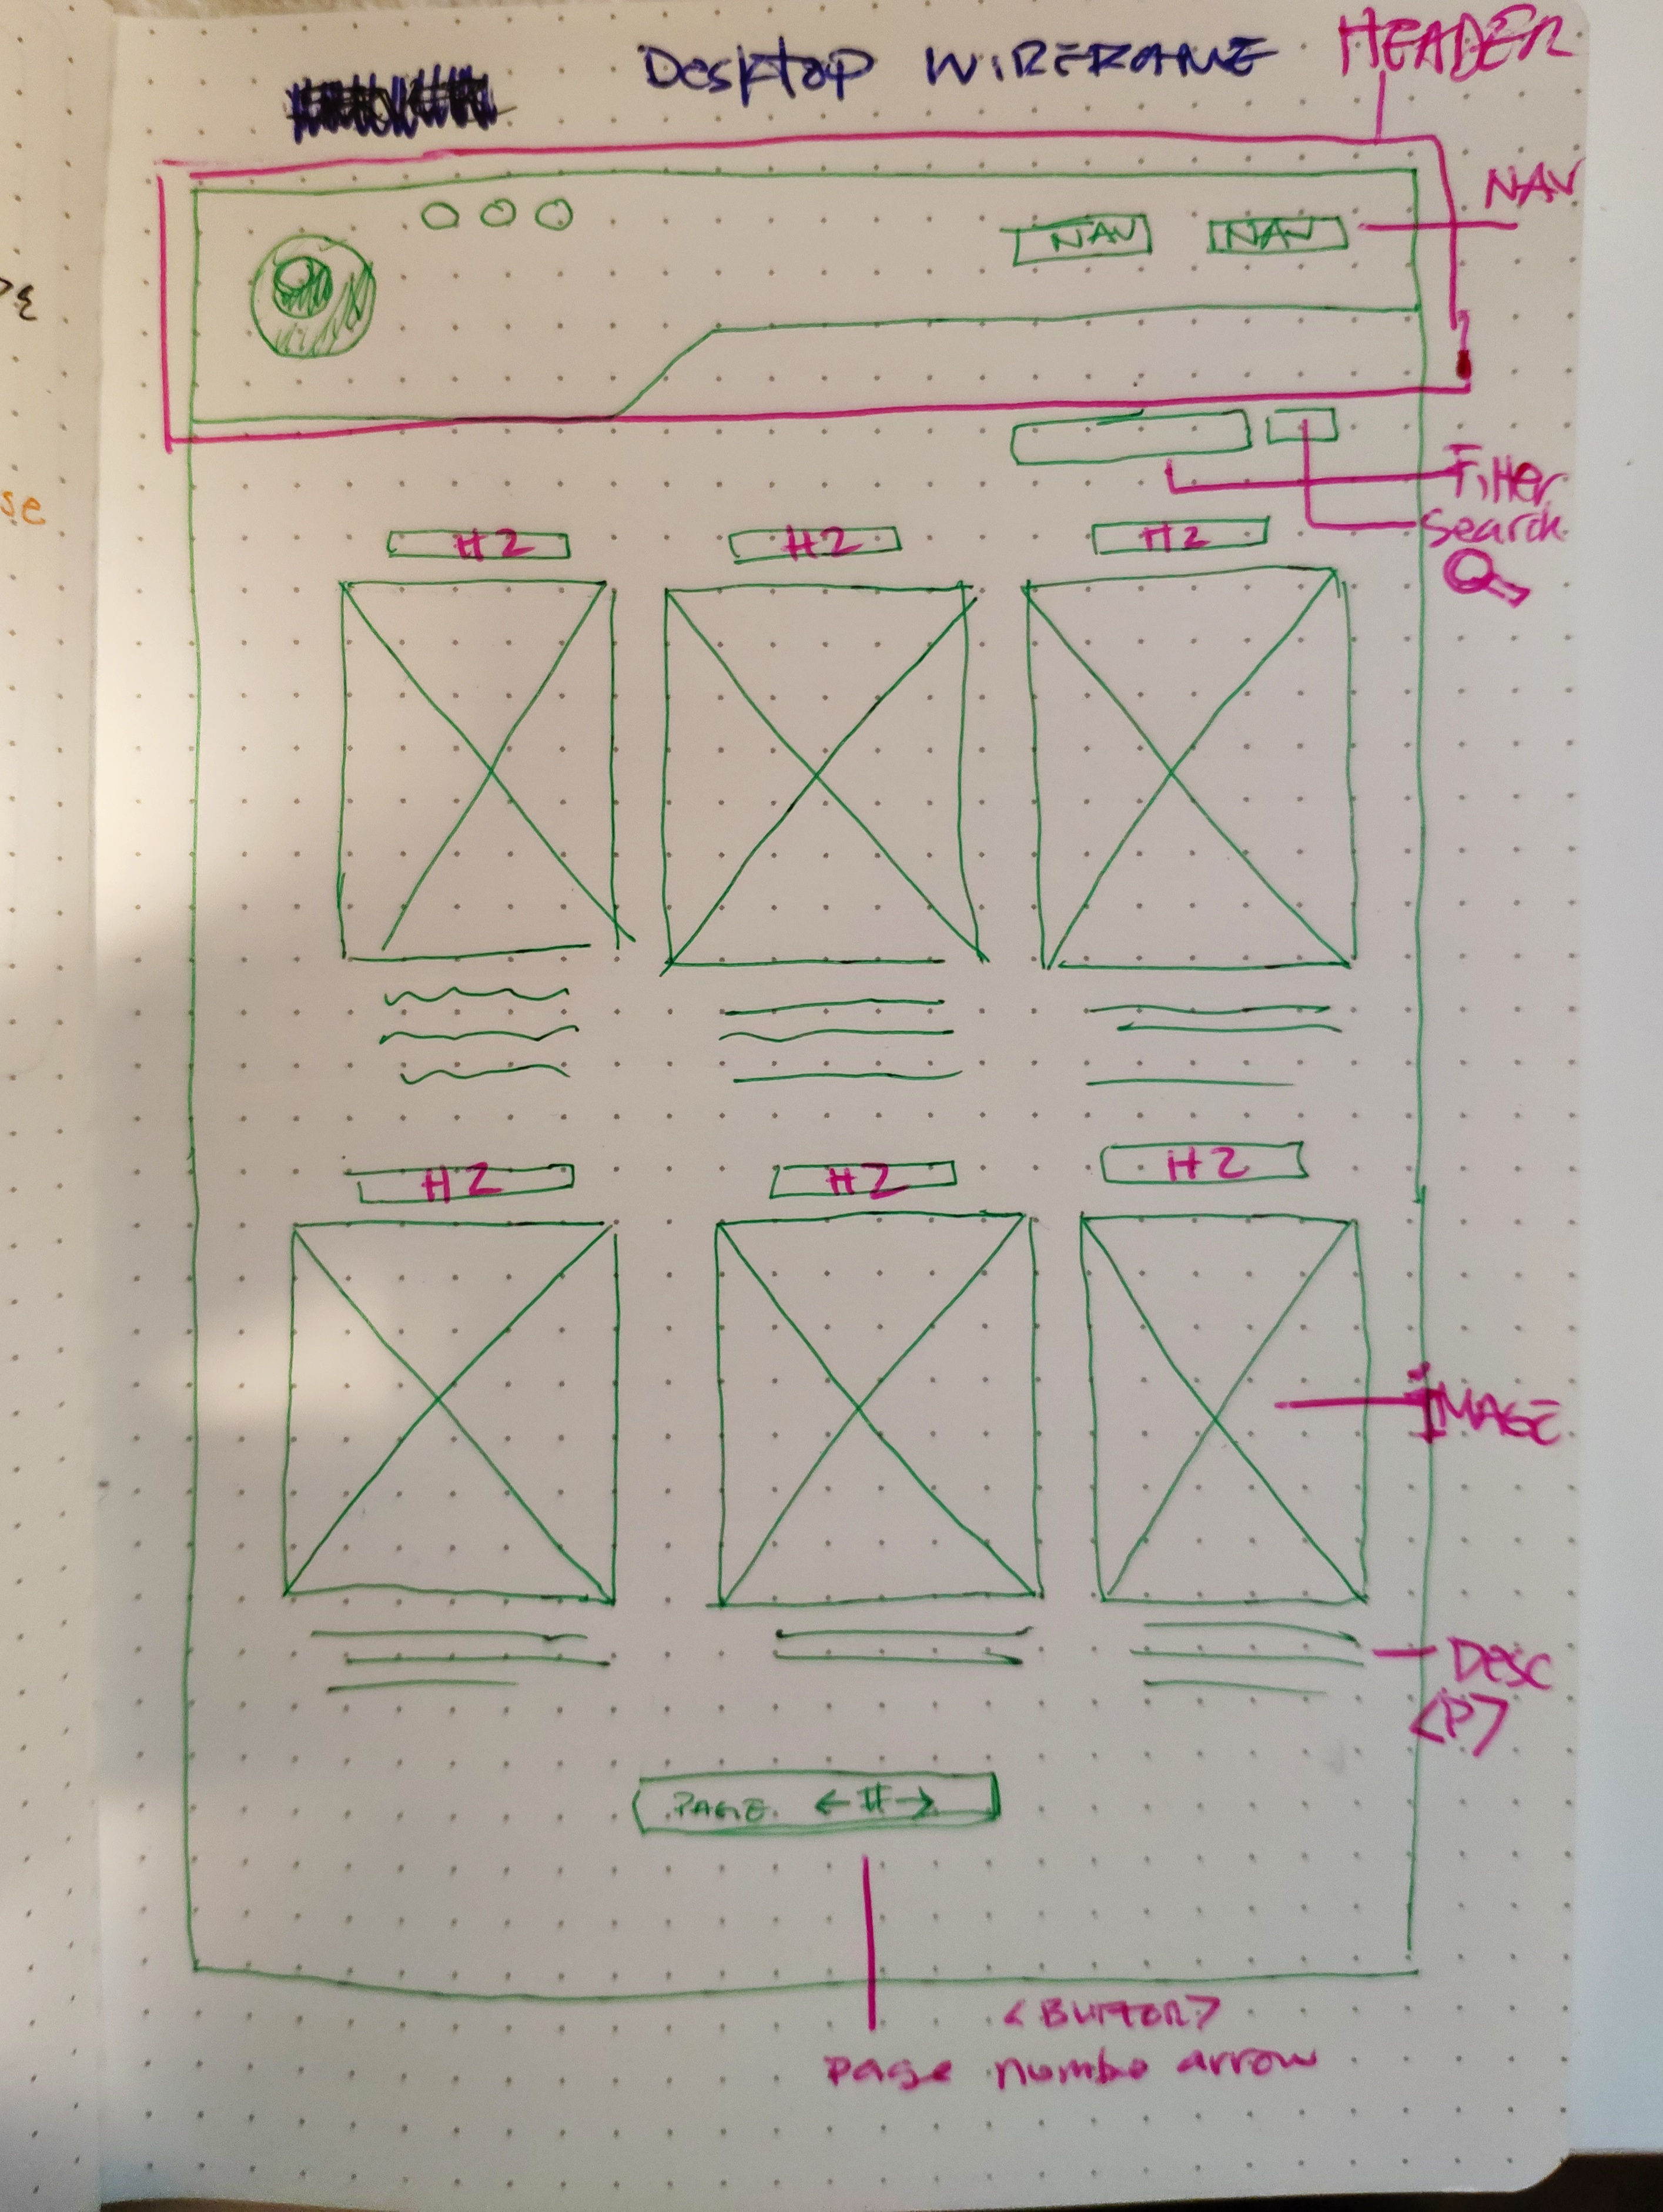 Desktop WIREFRAME
HEADER
NAV
NAV NAV
Filter
Search
se
H2 H2 H2
H2 H2 H2
IMAGE
Desc
<P>
PAGE ← # →
<BUTTON>
page numbe arrow